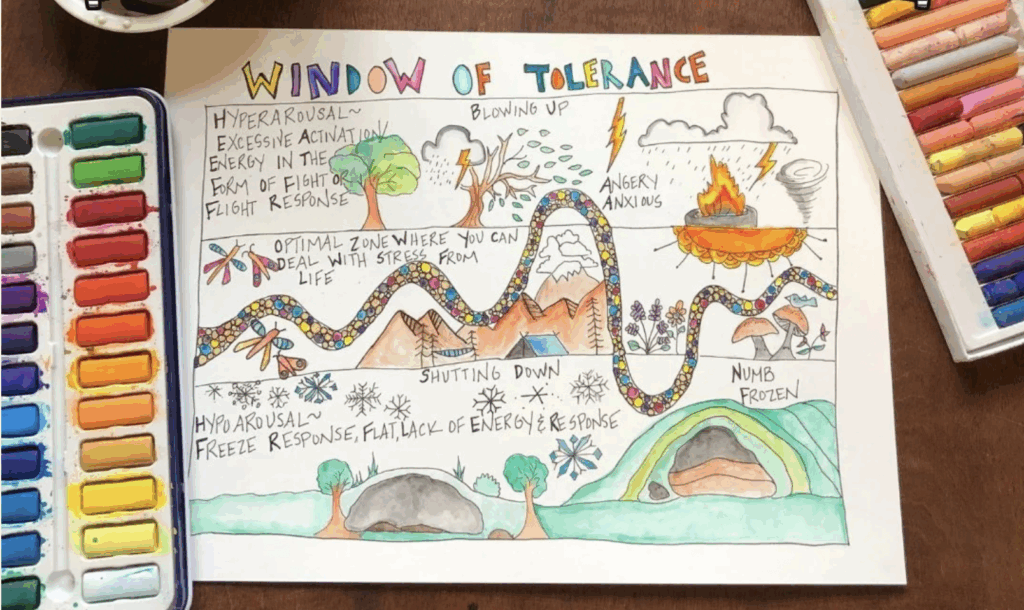 WINDOW OF TOLERANCE
HYPERAROUSAL~
EXCESSIVE ACTIVATION/
ENERGY IN THE
FORM OF FIGHT OR
FLIGHT RESPONSE
BLOWING UP
ANGERY
ANXIOUS
OPTIMAL ZONE WHERE YOU CAN
DEAL WITH STRESS FROM
LIFE
SHUTTING DOWN
NUMB
FROZEN
HYPOAROUSAL~
FREEZE RESPONSE, FLAT, LACK OF ENERGY & RESPONSE